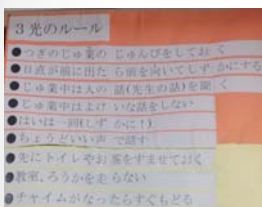 3光のルール
●つぎのじゅ業の じゅんびをしておく
●日直が前に出たら前を向いてしずかにする
●じゅ業中は人の話(先生の話)を聞く
●じゅ業中はよけいな話をしない
●はいは一回(しずかに!)
●ちょうどいい声で話す
●先にトイレやお茶をすませておく
●教室、ろうかを走らない
●チャイムがなったらすぐもどる